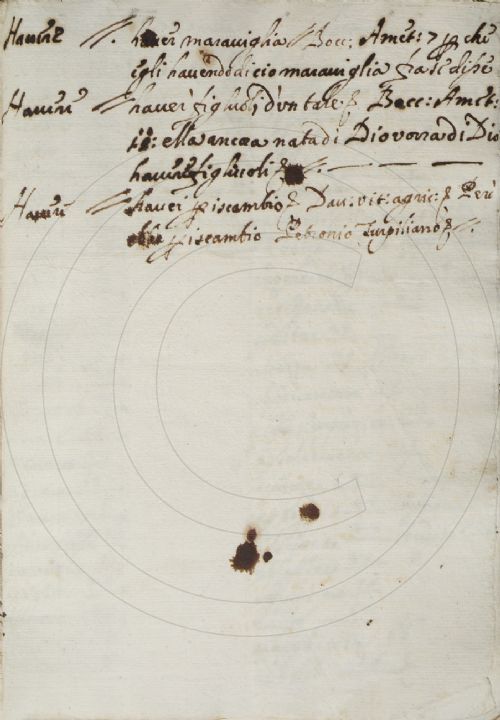 Havere //. haver maraviglia // Bocc: Amet: 7 che
egli havendo di cio maraviglia
Havere // haver figliuoli d'un tale Bocc: Amet:
ella ancora nata di Dio vorra di Dio
havere figliuoli //.
Havere // haver p iscambio Dav: vit: agric: Per
p iscambio Petronio Turpiliano //.